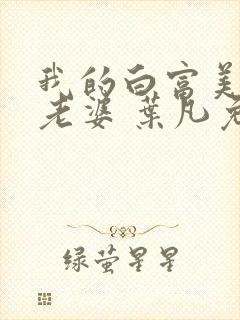 我的白富美
老婆 葉凡免
绿萤星星